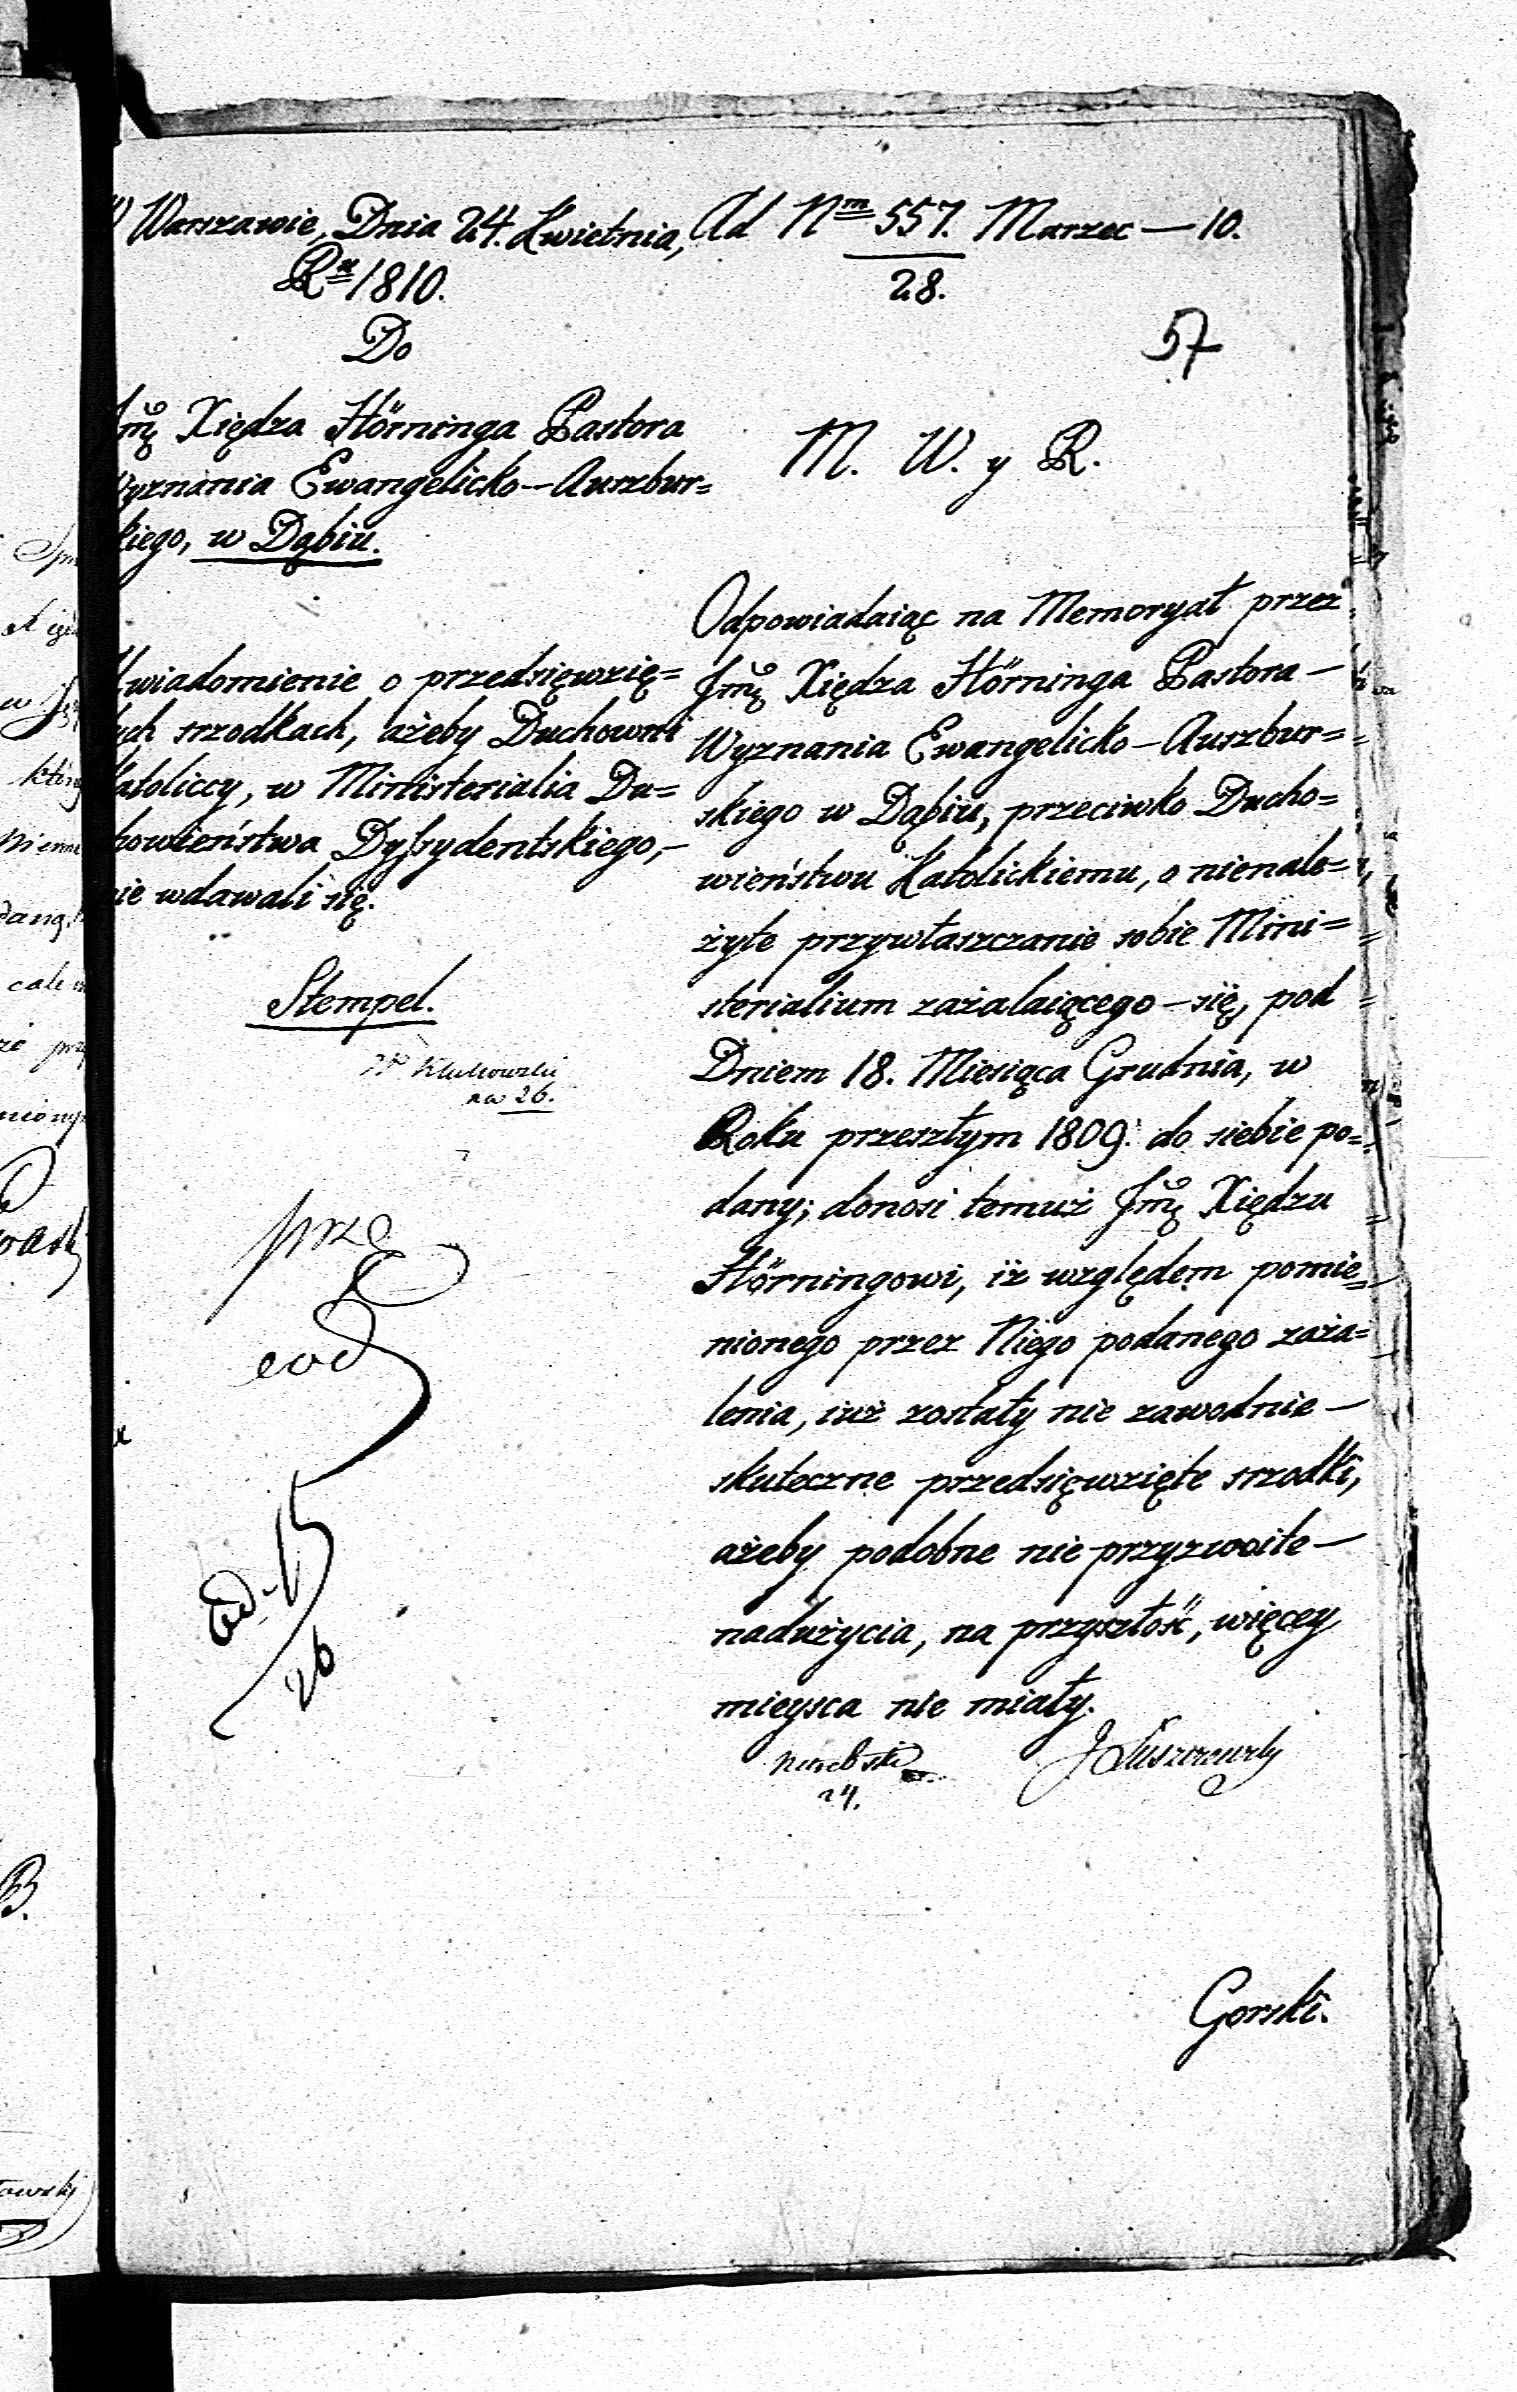 W Warszawie, Dnia 24. Kwietnia,
Ru 1810.
Do
Jmę Xiędza Hörninga Pastora
Wyznania Ewangelicko-Auszbur=
skiego, w Dąbiu.
Uwiadomienie o przedsięwzię=
tych srzodkach, ażeby Duchowni
Katoliccy, w Ministerialia Du=
chowieństwa Dyssydentskiego,-
nie wdawali się.
Stempel.
26.
eod
26
Ad Nm 557. Marzec — 10.
28.
57
M. W. y R.
Odpowiadaiąc na Memoryał przez
Jmę Xiędza Hörninga Pastora —
Wyznania Ewangelicko-Auszbur=
skiego w Dąbiu, przeciwko Ducho=
wieństwu Katolickiemu, o nienale=
żyte przywłaszczanie sobie Mini=
sterialium zażalaiącego-się, pod
Dniem 18. Miesiąca Grudnia, w
Roku przeszłym 1809. do siebie po=
dany; donosi temuż Jmę Xiędzu
Hörningowi, iż względem pomie=
nionego przez Niego podanego zaża=
lenia, iuż zostały nie zawodnie —
skuteczne przedsięwzięte srzodki,
ażeby podobne nie-przyzwoite —
nadużycia, na przyszłość, więcey
mieysca nie miały.
24.
Gorski.